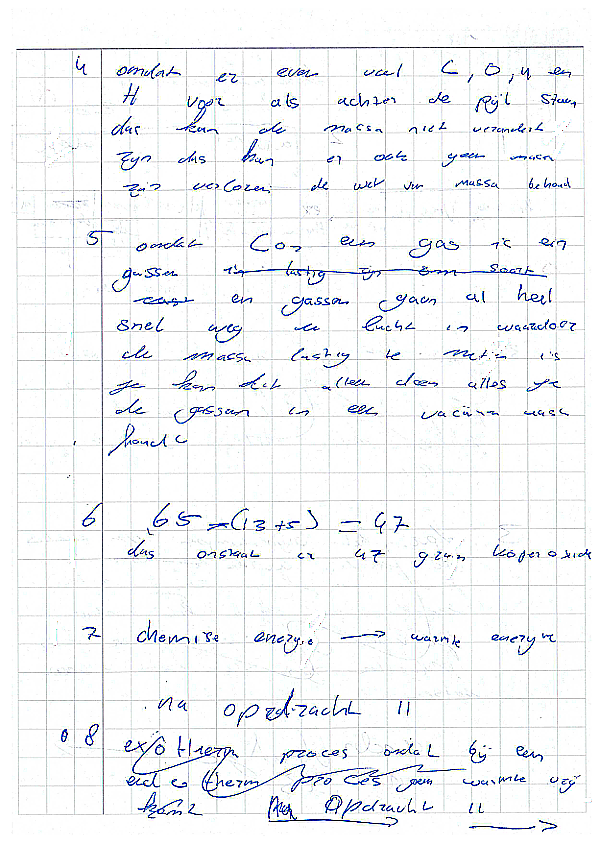 4 omdat er even veel C, O, N en
H voor als achter de pijl staan
dus kan de massa niet verandert
zijn dus kan er ook geen massa
zijn verloren de wet van massa behoud
5 omdat CO2 een gas is en
gassen is lastig zijn soort
en gassen gaan al heel
snel weg de lucht in waardoor
de massa lastig te meten is
je kan dit alleen doen alles je
de gassen in een vacuüm
houd
6 65 - (13 + 5) = 47
dus onstaat er 47 gram koperoxide
7 chemise energie → warmte energie
na opdracht 11
8 exotherm proces omdat bij een
endotherm proces geen warmte vrij
komt Opdracht 11 →